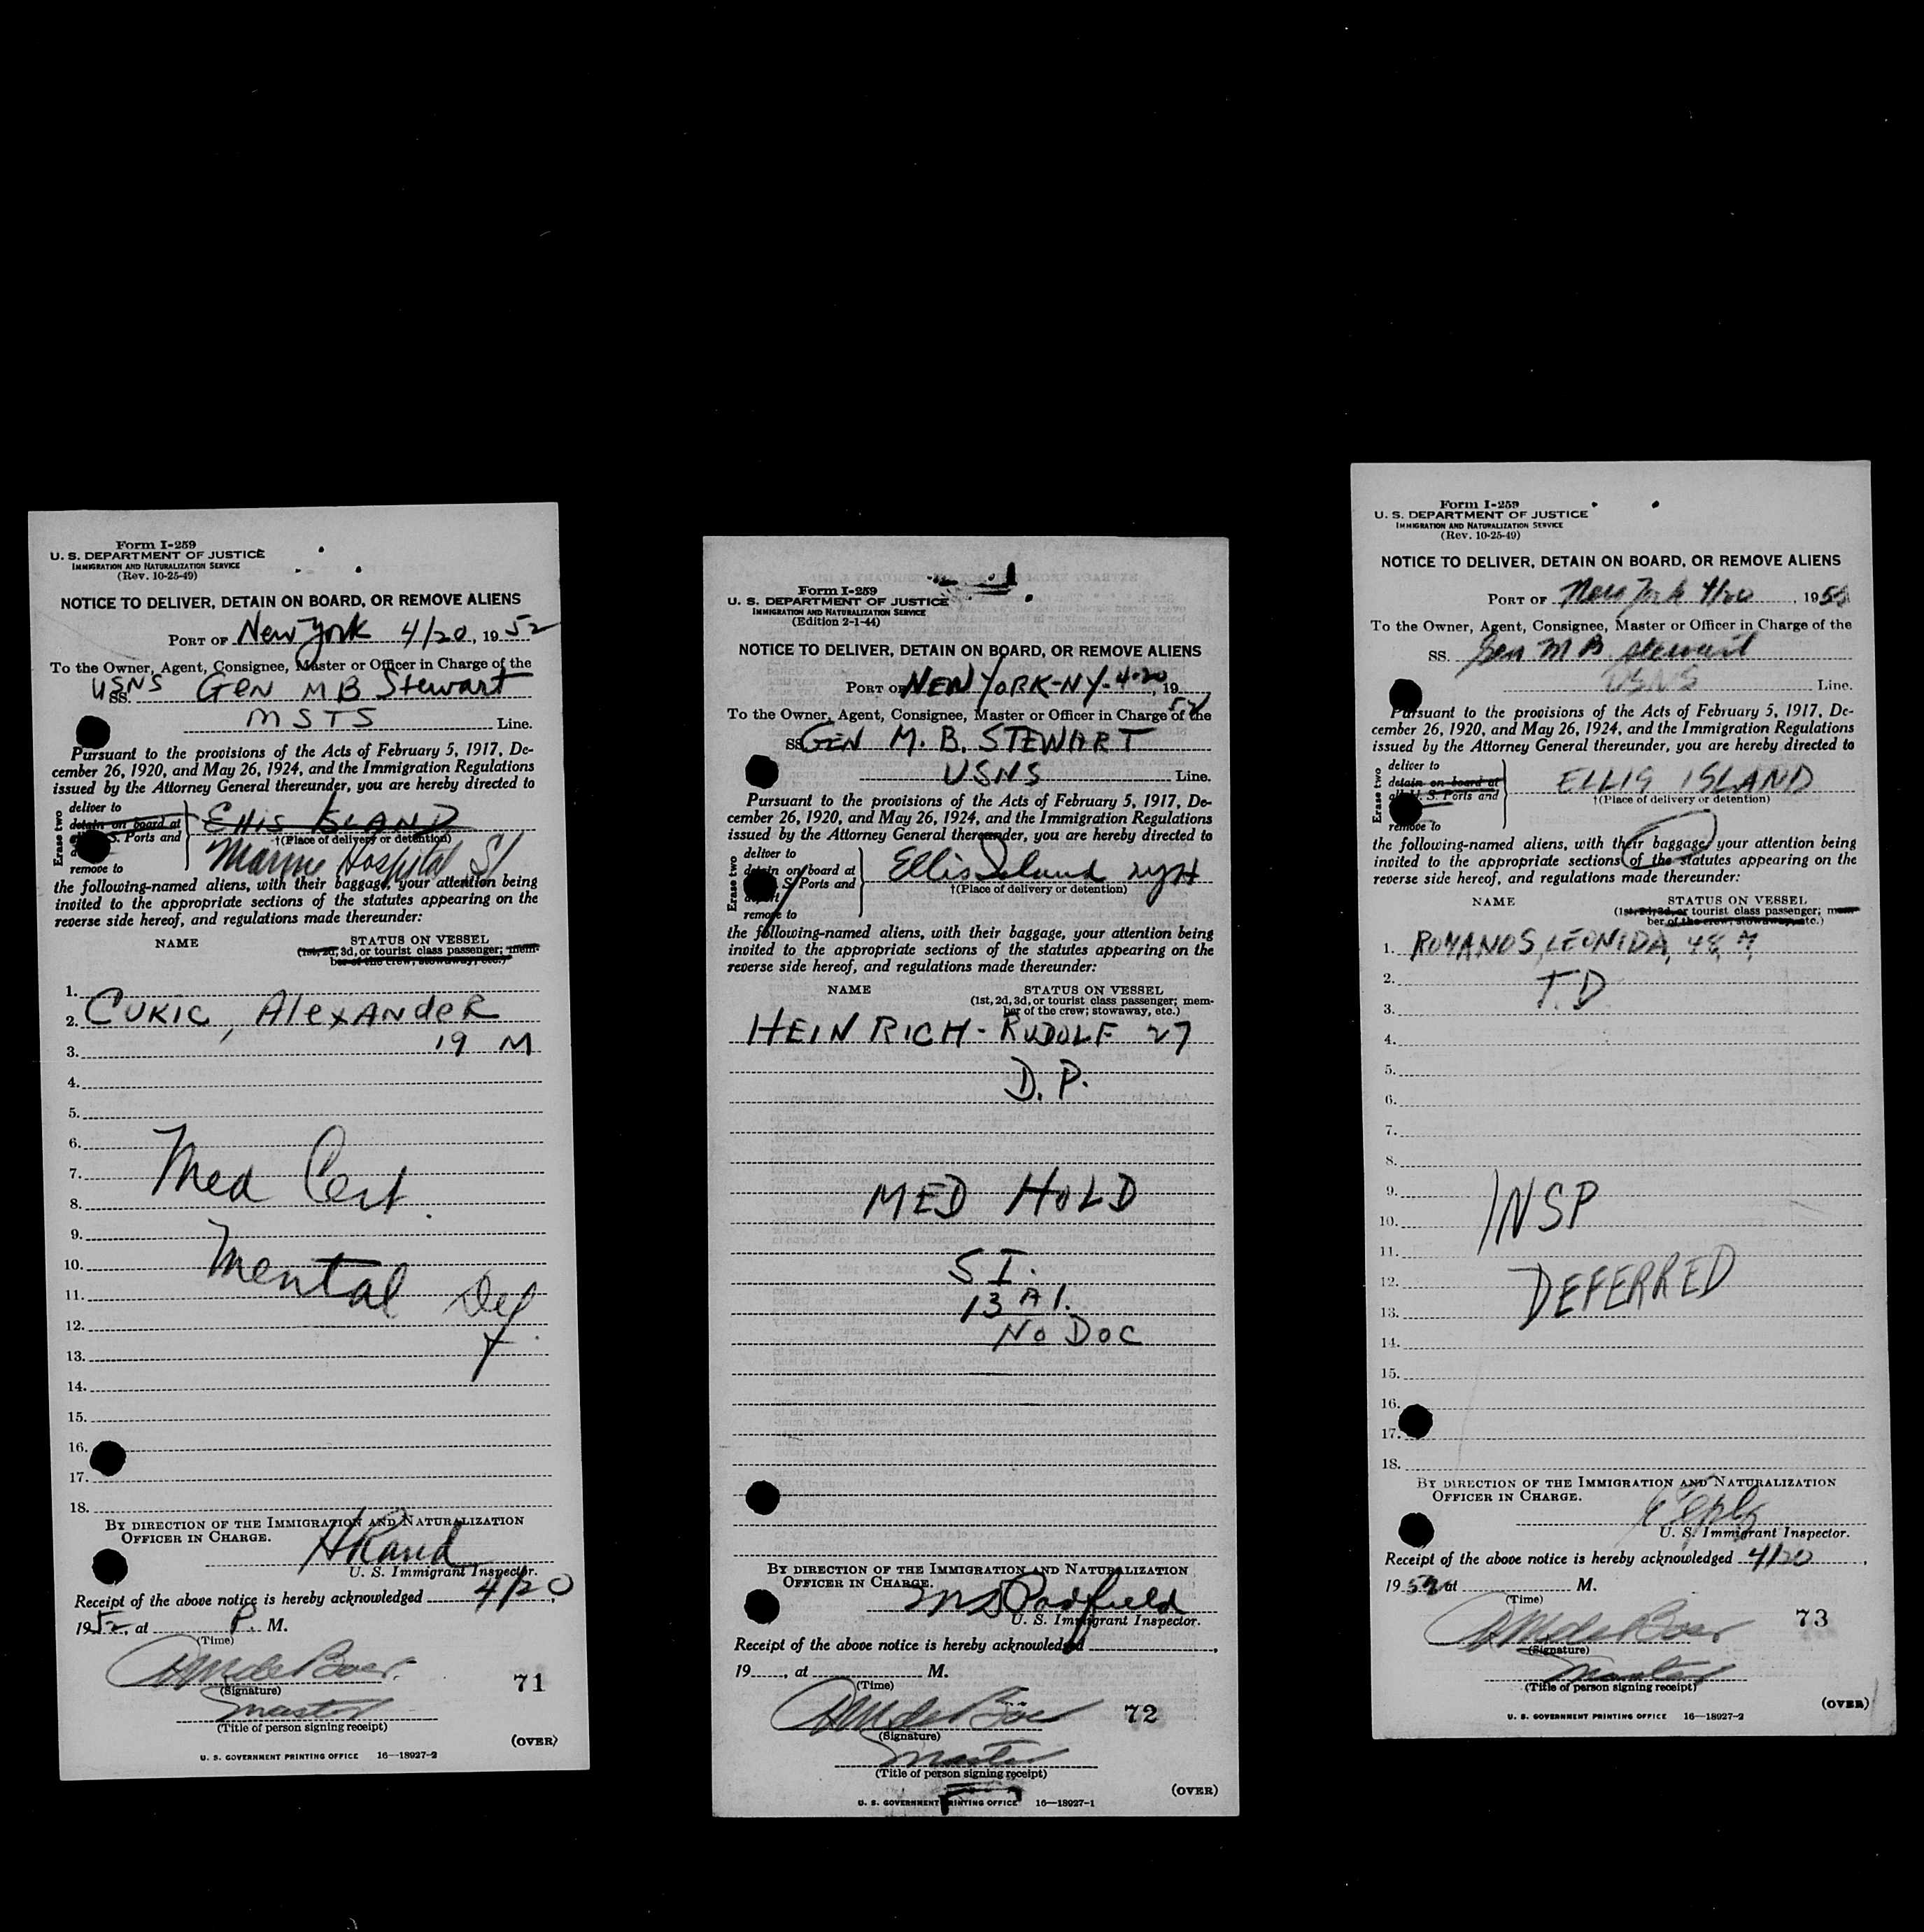 Form I-259
U. S. DEPARTMENT OF JUSTICE
IMMIGRATION AND NATURALIZATION SERVICE
(Rev. 10-25-49)
NOTICE TO DELIVER, DETAIN ON BOARD, OR REMOVE ALIENS
PORT OF New York 4/20, 1952
To the Owner, Agent, Consignee, Master or Officer in Charge of the
USNS
SS. GEN M B Stewart
MSTS Line.
Pursuant to the provisions of the Acts of February 5, 1917, De-
cember 26, 1920, and May 26, 1924, and the Immigration Regulations
issued by the Attorney General thereunder, you are hereby directed to
Erase two
deliver to
detain on board at
S. Ports and
remove to
Ellis ISLAND
†(Place of delivery or detention)
Marine Hospital SI
the following-named aliens, with their baggage, your attention being
invited to the appropriate sections of the statutes appearing on the
reverse side hereof, and regulations made thereunder:
NAME STATUS ON VESSEL
(1st, 2d, 3d, or tourist class passenger; mem-
ber of the crew; stowaway, etc.)
1.
2. CUKIC, AlexANdeR
3. 19 M
4.
5.
6.
7. Med Cert.
8.
9.
10. Mental Def.
11.
12.
13.
14.
15.
16.
17.
18.
BY DIRECTION OF THE IMMIGRATION AND NATURALIZATION
OFFICER IN CHARGE.
HRand
U. S. Immigrant Inspector.
Receipt of the above notice is hereby acknowledged 4/20,
1952, at P. M.
(Time)
deBoer
(Signature)
71
master
(Title of person signing receipt)
(OVER)
U. S. GOVERNMENT PRINTING OFFICE 16—18927-2
Form I-259
U. S. DEPARTMENT OF JUSTICE
IMMIGRATION AND NATURALIZATION SERVICE
(Edition 2-1-44)
NOTICE TO DELIVER, DETAIN ON BOARD, OR REMOVE ALIENS
PORT OF NEW YORK-NY-4-20, 1952
To the Owner, Agent, Consignee, Master or Officer in Charge of the
SS GEN M. B. STEWART
USNS Line.
Pursuant to the provisions of the Acts of February 5, 1917, De-
cember 26, 1920, and May 26, 1924, and the Immigration Regulations
issued by the Attorney General thereunder, you are hereby directed to
Erase two
deliver to
detain on board at
S. Ports and
remove to
Ellis Island NYH
†(Place of delivery or detention)
the following-named aliens, with their baggage, your attention being
invited to the appropriate sections of the statutes appearing on the
reverse side hereof, and regulations made thereunder:
NAME STATUS ON VESSEL
(1st, 2d, 3d, or tourist class passenger; mem-
ber of the crew; stowaway, etc.)
HEINRICH - RUDOLF 27
D. P.
MED HOLD
S I.
13 A 1.
NO DOC
BY DIRECTION OF THE IMMIGRATION AND NATURALIZATION
OFFICER IN CHARGE.
Padfield
U. S. Immigrant Inspector.
Receipt of the above notice is hereby acknowledged ,
19 , at M.
(Time)
deBoer
(Signature)
72
Master
(Title of person signing receipt)
(OVER)
U. S. GOVERNMENT PRINTING OFFICE 16—18927-1
Form I-259
U. S. DEPARTMENT OF JUSTICE
IMMIGRATION AND NATURALIZATION SERVICE
(Rev. 10-25-49)
NOTICE TO DELIVER, DETAIN ON BOARD, OR REMOVE ALIENS
PORT OF New York 4/20, 195
To the Owner, Agent, Consignee, Master or Officer in Charge of the
SS. Gen M B Stewart
USNS Line.
Pursuant to the provisions of the Acts of February 5, 1917, De-
cember 26, 1920, and May 26, 1924, and the Immigration Regulations
issued by the Attorney General thereunder, you are hereby directed to
Erase two
deliver to
detain on board at
S. Ports and
remove to
ELLIS ISLAND
†(Place of delivery or detention)
the following-named aliens, with their baggage, your attention being
invited to the appropriate sections of the statutes appearing on the
reverse side hereof, and regulations made thereunder:
NAME STATUS ON VESSEL
(1st, 2d, 3d, or tourist class passenger; mem-
ber of the crew, stowaway, etc.)
1. ROMANOS, LEONIDA, 48, M
2. T.D
3.
4.
5.
6.
7.
8.
9. INSP
10.
11.
12. DEFERRED
13.
14.
15.
16.
17.
18.
BY DIRECTION OF THE IMMIGRATION AND NATURALIZATION
OFFICER IN CHARGE.
U. S. Immigrant Inspector.
Receipt of the above notice is hereby acknowledged 4/20,
1952 at M.
(Time)
deBoer
(Signature)
73
Master
(Title of person signing receipt)
(OVER)
U. S. GOVERNMENT PRINTING OFFICE 16—18927-2